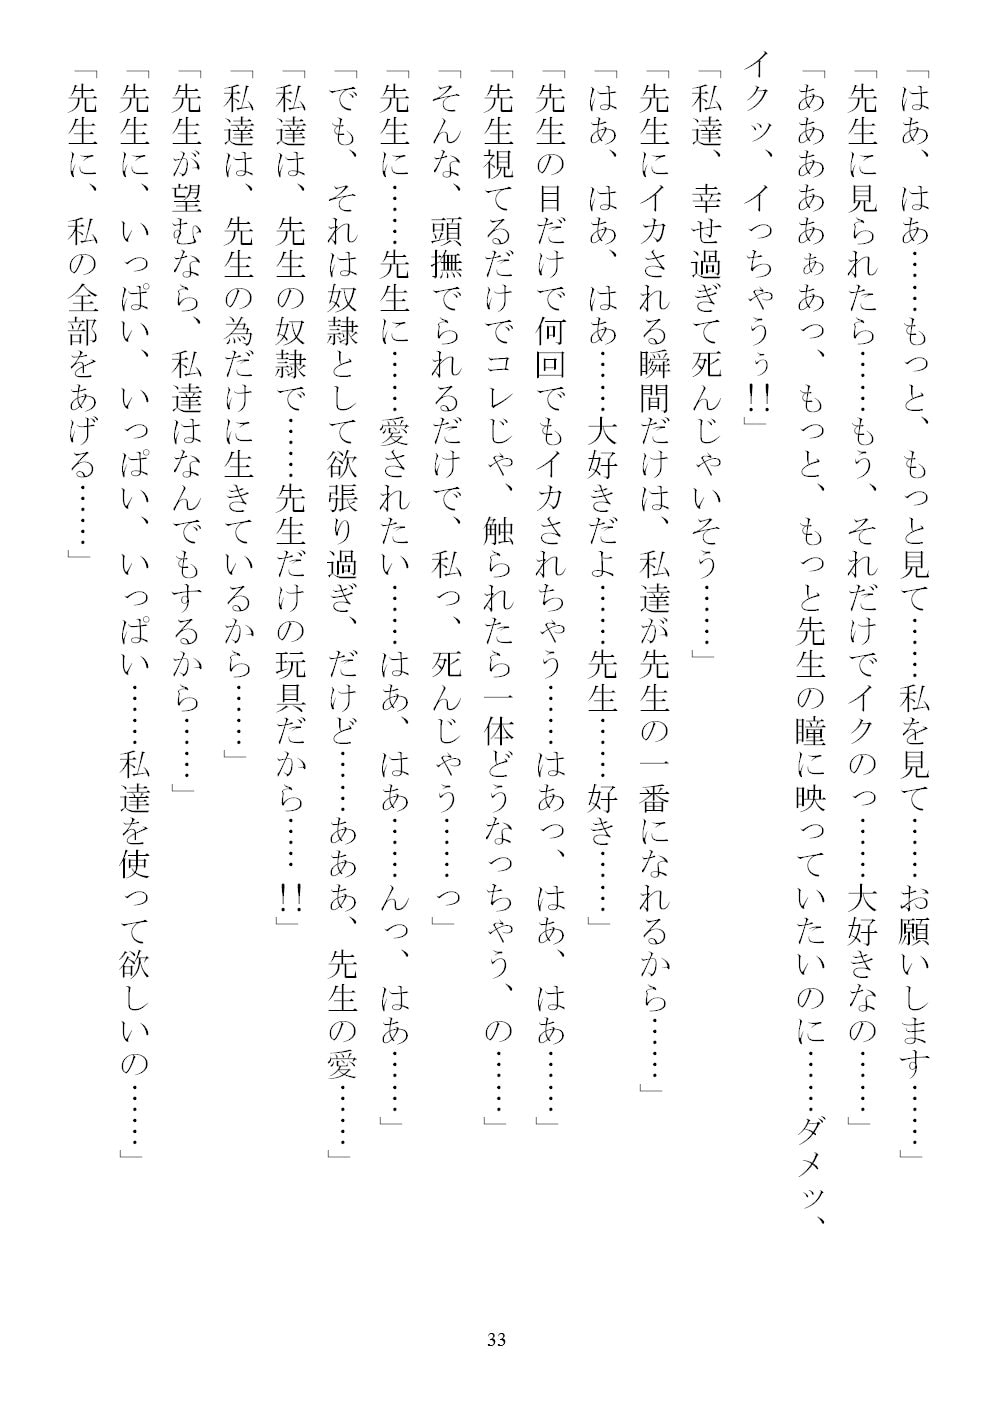 「はあ、はあ……もっと、もっと見て……私を見て……お願いします……」
「先生に見られたら……もう、それだけでイクのっ……大好きなの……」
「あああああぁあっ、もっと、もっと先生の瞳に映っていたいのに……ダメッ、
イクッ、イっちゃうぅ!!」
「私達、幸せ過ぎて死んじゃいそう……」
「先生にイカされる瞬間だけは、私達が先生の一番になれるから……」
「はあ、はあ、はあ……大好きだよ……先生……好き……」
「先生の目だけで何回でもイカされちゃう……はあっ、はあ、はあ……」
「先生視てるだけでコレじゃ、触られたら一体どうなっちゃう、の……」
「そんな、頭撫でられるだけで、私っ、死んじゃう……っ」
「先生に……先生に……愛されたい……はあ、はあ……んっ、はあ……」
「でも、それは奴隷として欲張り過ぎ、だけど……あああ、先生の愛……」
「私達は、先生の奴隷で……先生だけの玩具だから……!!」
「私達は、先生の為だけに生きているから……」
「先生が望むなら、私達はなんでもするから……」
「先生に、いっぱい、いっぱい、いっぱい……私達を使って欲しいの……」
「先生に、私の全部をあげる……」
33